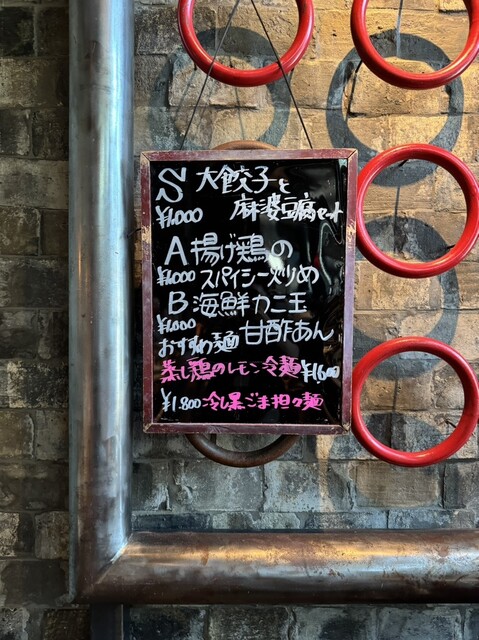 S 大餃子と
¥1,000 麻婆豆腐セット
A 揚げ鶏の
¥1,000 スパイシー炒め
B 海鮮カニ玉
¥1,000 甘酢あん
おすすめ麺
蒸し鶏のレモン冷麺 ¥1,600
¥1,800 冷し黒ごま担々麺